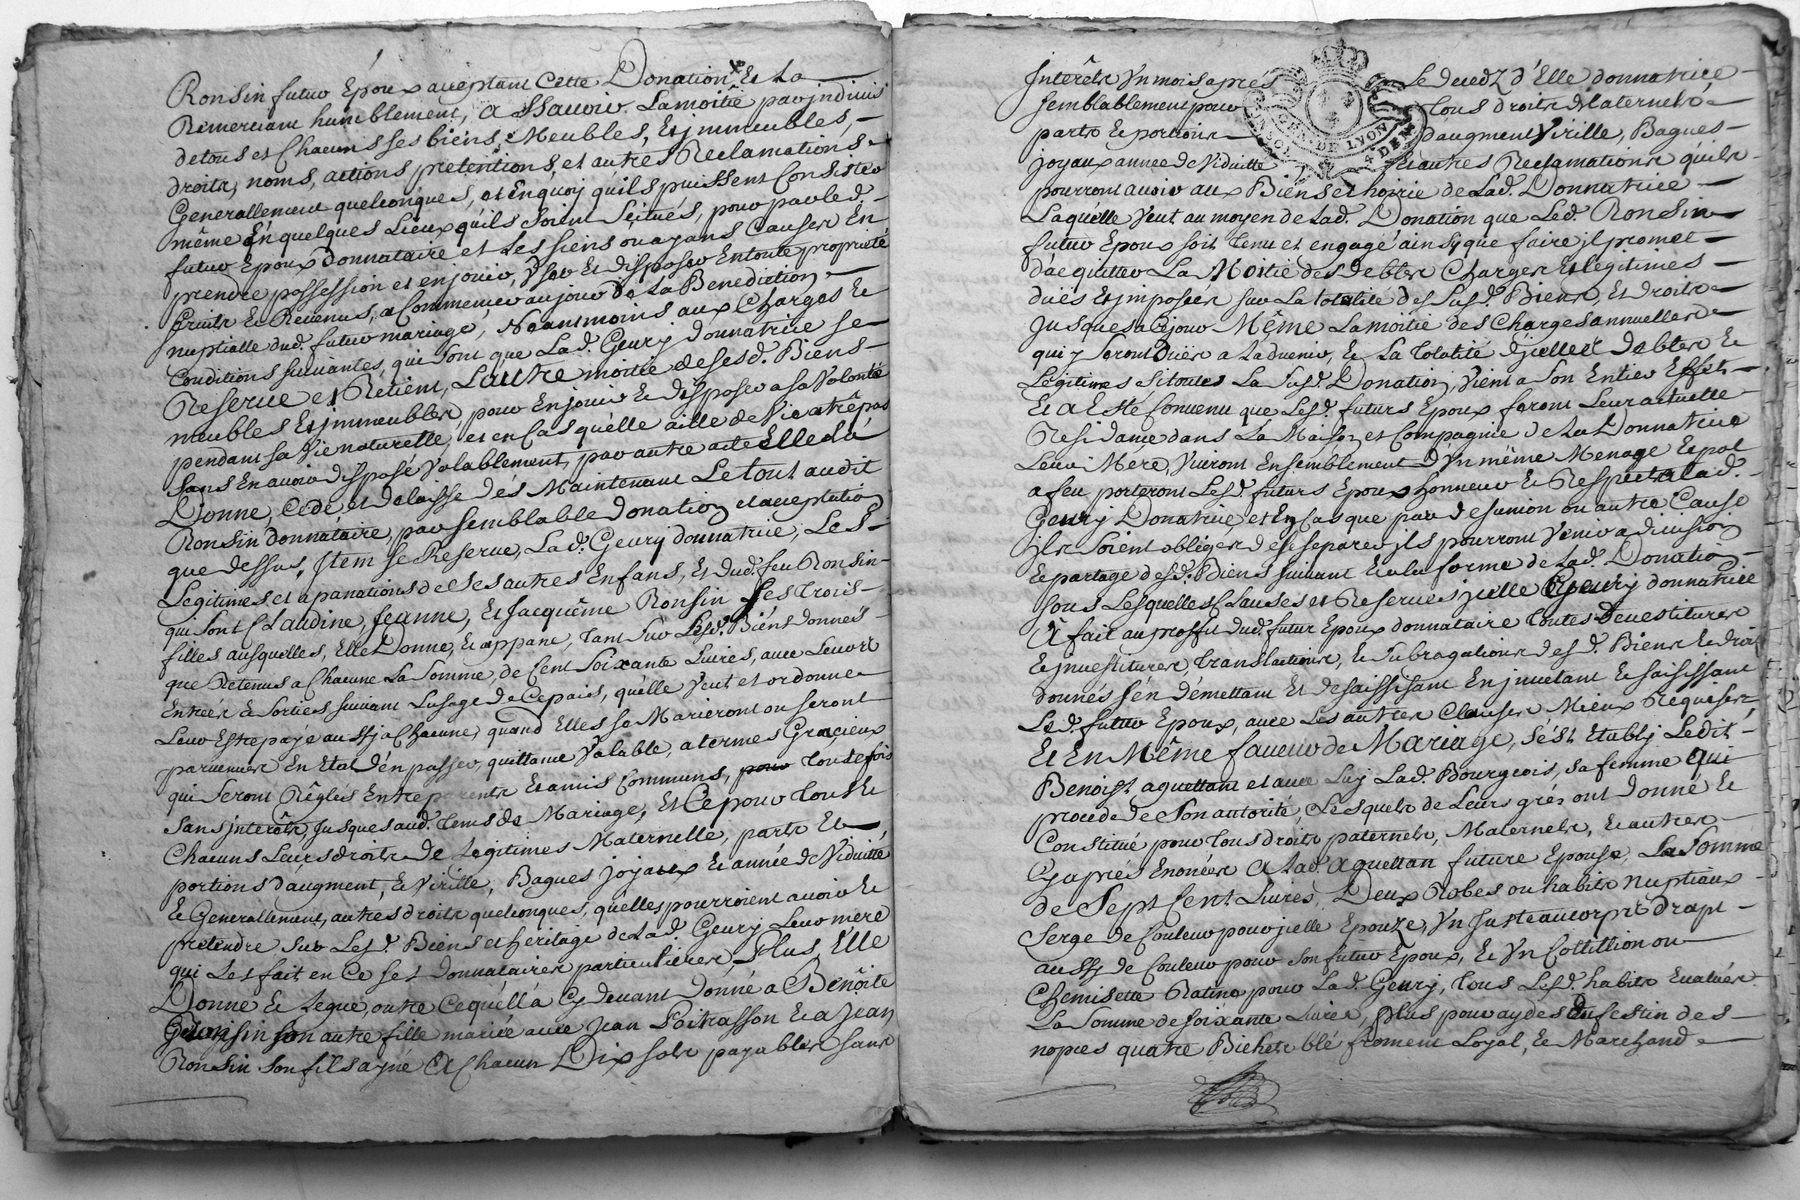 Ronsin futur Epoux aceptant Cette Donation Et La
Remerciant humblement, a Sçauoir Lamoitié par jndiuis
detous et Chacuns ses biens, Meubles, Et jmmeubles,
droits, noms, actions pretentions, et autres Reclamations
Generallement quelconques, et Enquoy qu'ils puissent Consister
même En quelques Lieux qu'ils soient Scitués, pour par led.
futur Epoux donnataire et Les siens ou ayans Causer En
prendre possession et enjouir, User Et disposer Entoute proprieté
fruits Et Reuenus, a Commencer aujour de La Benediction
nuptialle dud. futur mariage, Neantmoins aux Charges Et
Conditions suiuantes, qui sont que Lad. Geury donnatrice se
Reserue et Retient, Lautre moitié desesd. Biens
meubles Et jmmeubles, pour Enjouir Et disposer a sa Volonté
pendant sa Vie naturelle, et en Cas qu'elle aille de Vie a trêpas
sans En auoir disposé Valablement, par autre acte Elle La
Donne, Cede, et delaisse dés Maintenant Le tout audit
Ronsin donnataire, par semblable donation et acceptation
que dessus, Jtem se Reserue, Lad. Geury donnatrice, Les
Legitimes et apanations de ses autres Enfans, Et dud. feu Ronsin
qui sont Claudine, Jeanne, Et Jacquême Ronsin ses trois
filles ausquelles, Elle Donne, Et appane, tant sur Lesd. Biens donnés
que Retenus a Chacune La somme, de Cent Soixante Liures, auec Leurs
Entrées Et Sorties suiuant Lusage de Ce pais, qu'elle Veut et ordonne
Leur Estre payé aussy a Chacune, quand Elles se Marieront ou seront
paruenues En Etat d'en passer, quittance Valable, a termes Gracieux
qui seront Règlés Entre parents Et amis Communs, toutefois
sans jnterêts, jusques aud. tems de Mariage, Et Ce pour tous Et
Chacuns Leurs droits de Legitimes Maternelle, parts Et
portions d'augment, Et Virille, Bagues joyaux Et année de Viduité
Et Generallement, autres droits quelconques, quelles pourroient auoir Et
pretendre sur Lesd. Biens et heritage de Lad. Geury Leur mere
qui Les fait en Ce ses donnataires particulieres, Plus, Elle
Donne Et Legue, outre Cequ'ell'a Cy deuant donné a Benoîte
Ronsin son autre fille mariée auec Jean Poitrasson Et a Jean
Ronsin son fils ayné A Chacun Dix sols payables sans
Jnterêts Un mois aprés Le decedz d'Elle donnatrice
semblablement pour tous droits Maternels
parts Et portions d'augment Virille, Bagues
joyaux année de Viduité Et autres Reclamations qu'ils
pourront auoir aux Biens et hoirie de Lad. Donnatrice
Laquelle Veut au moyen de Lad. Donation que Led. Ronsin
futur Epoux soit tenu et engagé ainsy que faire jl promet
d'acquitter La Moitié des debtes Charges Et Legitimes
duës Et jmposées sur La totalité des Susd. Biens, Et droits
Jusques a Cejour Même La moitié des Charges annuelles
qui y seront duës a Laduenir, Et La totalité d'jcelles debtes Et
Legitimes si toutes La susd. Donation, Vient a Son Entier Effet
Et a Esté Conuenu que Lesd. futurs Epoux feront Leur actuelle
Residance dans La Maison et Compagnie de La Donnatrice
Leur Mére, Viuront Ensemblement d'Un même Menage Et pot
a feu porteront Lesd. futurs Epoux honneur Et Respect a Lad.
Geury Donatrice et En Cas que par desunion ou autre Cause
jls soient obliges de se separer ils pourront Venir a diuision
Et partage desd. Biens suiuant Et a La forme de Lad. Donation
sous Lesquelles Clauses et Reserues jcelle Geury donnatrice
A fait au proffit dud. futur Epoux donnataire toutes Deuestitures
Et jnuestitures, translations, Et Subrogations desd. Biens Et droits
donnés s'en démettant Et desaississant En juuetant Et saississant
Led. futur Epoux, auec Les autres Clauses Mieux Requises
Et En Même faueur de Mariage, s'est Etably Ledit
Benoist aguettant et auec Luy Lad. Bourgeois, sa femme qui
procede de Son autorité, Lesquels de Leurs grés ont donné Et
Constitué pour tous droits paternels, Maternels, Et autres
Cy aprés Enoncés A Lad. Aguettan future Epouse, La Somme
de Sept Cent Liures, Deux Robes ou habits nuptiaux
Serge de Couleur pour jcelle Epouze, Un Justeaucorps drapt
aussy de Couleur pour son futur Epoux, Et Un Cottillion ou
Chemisette Ratine pour Lad. Geury, tous Lesd. habits Eualués
La Somme de soixante Liures, Plus pour aydes du festin des
nopces quatre Bichets blé froment Loyal, Et Marchand